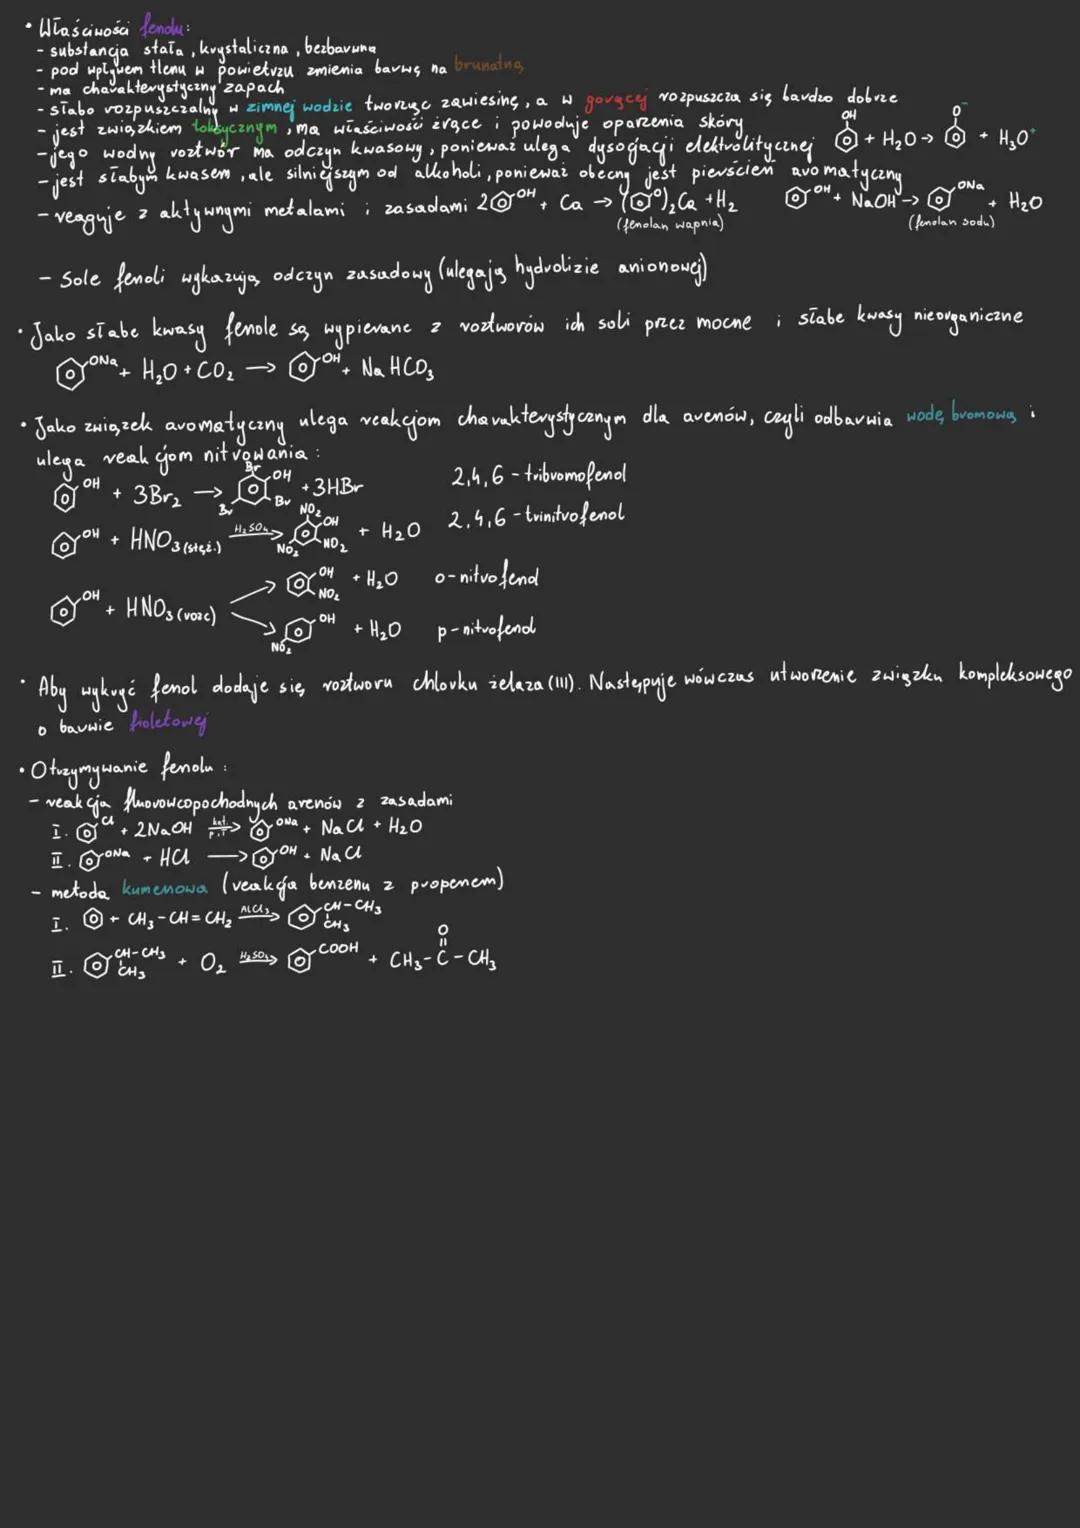 • Właściwości fenolu:
- substancja stała, krystaliczna, bezbarwna
- pod wpływem tlenu w powietrzu zmienia barwę na brunatną
- ma charakterystyczny zapach
- słabo rozpuszczalny w zimnej wodzie tworząc zawiesinę, a w gorącej rozpuszcza się bardzo dobrze
- jest związkiem toksycznym, ma właściwości żrące i powoduje oparzenia skóry
- jego wodny roztwór ma odczyn kwasowy, ponieważ ulega dysocjacji elektrolitycznej OH + H₂O → O⁻ + H₃O⁺
- jest słabym kwasem, ale silniejszym od alkoholi, ponieważ obecny jest pierścień aromatyczny
- reaguje z aktywnymi metalami i zasadami 2 OH + Ca → (O)₂Ca + H₂ OH + NaOH → ONa + H₂O
(fenolan wapnia) (fenolan sodu)
- Sole fenoli wykazują odczyn zasadowy (ulegają hydrolizie anionowej)
• Jako słabe kwasy fenole są wypierane z roztworów ich soli przez mocne i słabe kwasy nieorganiczne
ONa + H₂O + CO₂ → OH + NaHCO₃
• Jako związek aromatyczny ulega reakcjom charakterystycznym dla arenów, czyli odbarwia wodę bromową i
ulega reakcjom nitrowania:
OH + 3Br₂ → Br OH Br Br + 3HBr 2,4,6 - tribromofenol
OH + HNO₃ (stęż.) H₂SO₄ → NO₂ OH NO₂ NO₂ + H₂O 2,4,6 - trinitrofenol
OH + HNO₃ (rozc)
OH NO₂ + H₂O o-nitrofenol
OH NO₂ + H₂O p-nitrofenol
• Aby wykryć fenol dodaje się roztworu chlorku żelaza (III). Następuje wówczas utworzenie związku kompleksowego
o barwie fioletowej
• Otrzymywanie fenolu:
- reakcja fluorowcopochodnych arenów z zasadami
I. Cl + 2NaOH kat. p,T → ONa + NaCl + H₂O
II. ONa + HCl → OH + NaCl
- metoda kumenowa (reakcja benzenu z propenem)
I. + CH₃-CH=CH₂ AlCl₃ → CH-CH₃ CH₃
II. CH-CH₃ CH₃ + O₂ H₂SO₄ → COOH + CH₃-C-CH₃ O